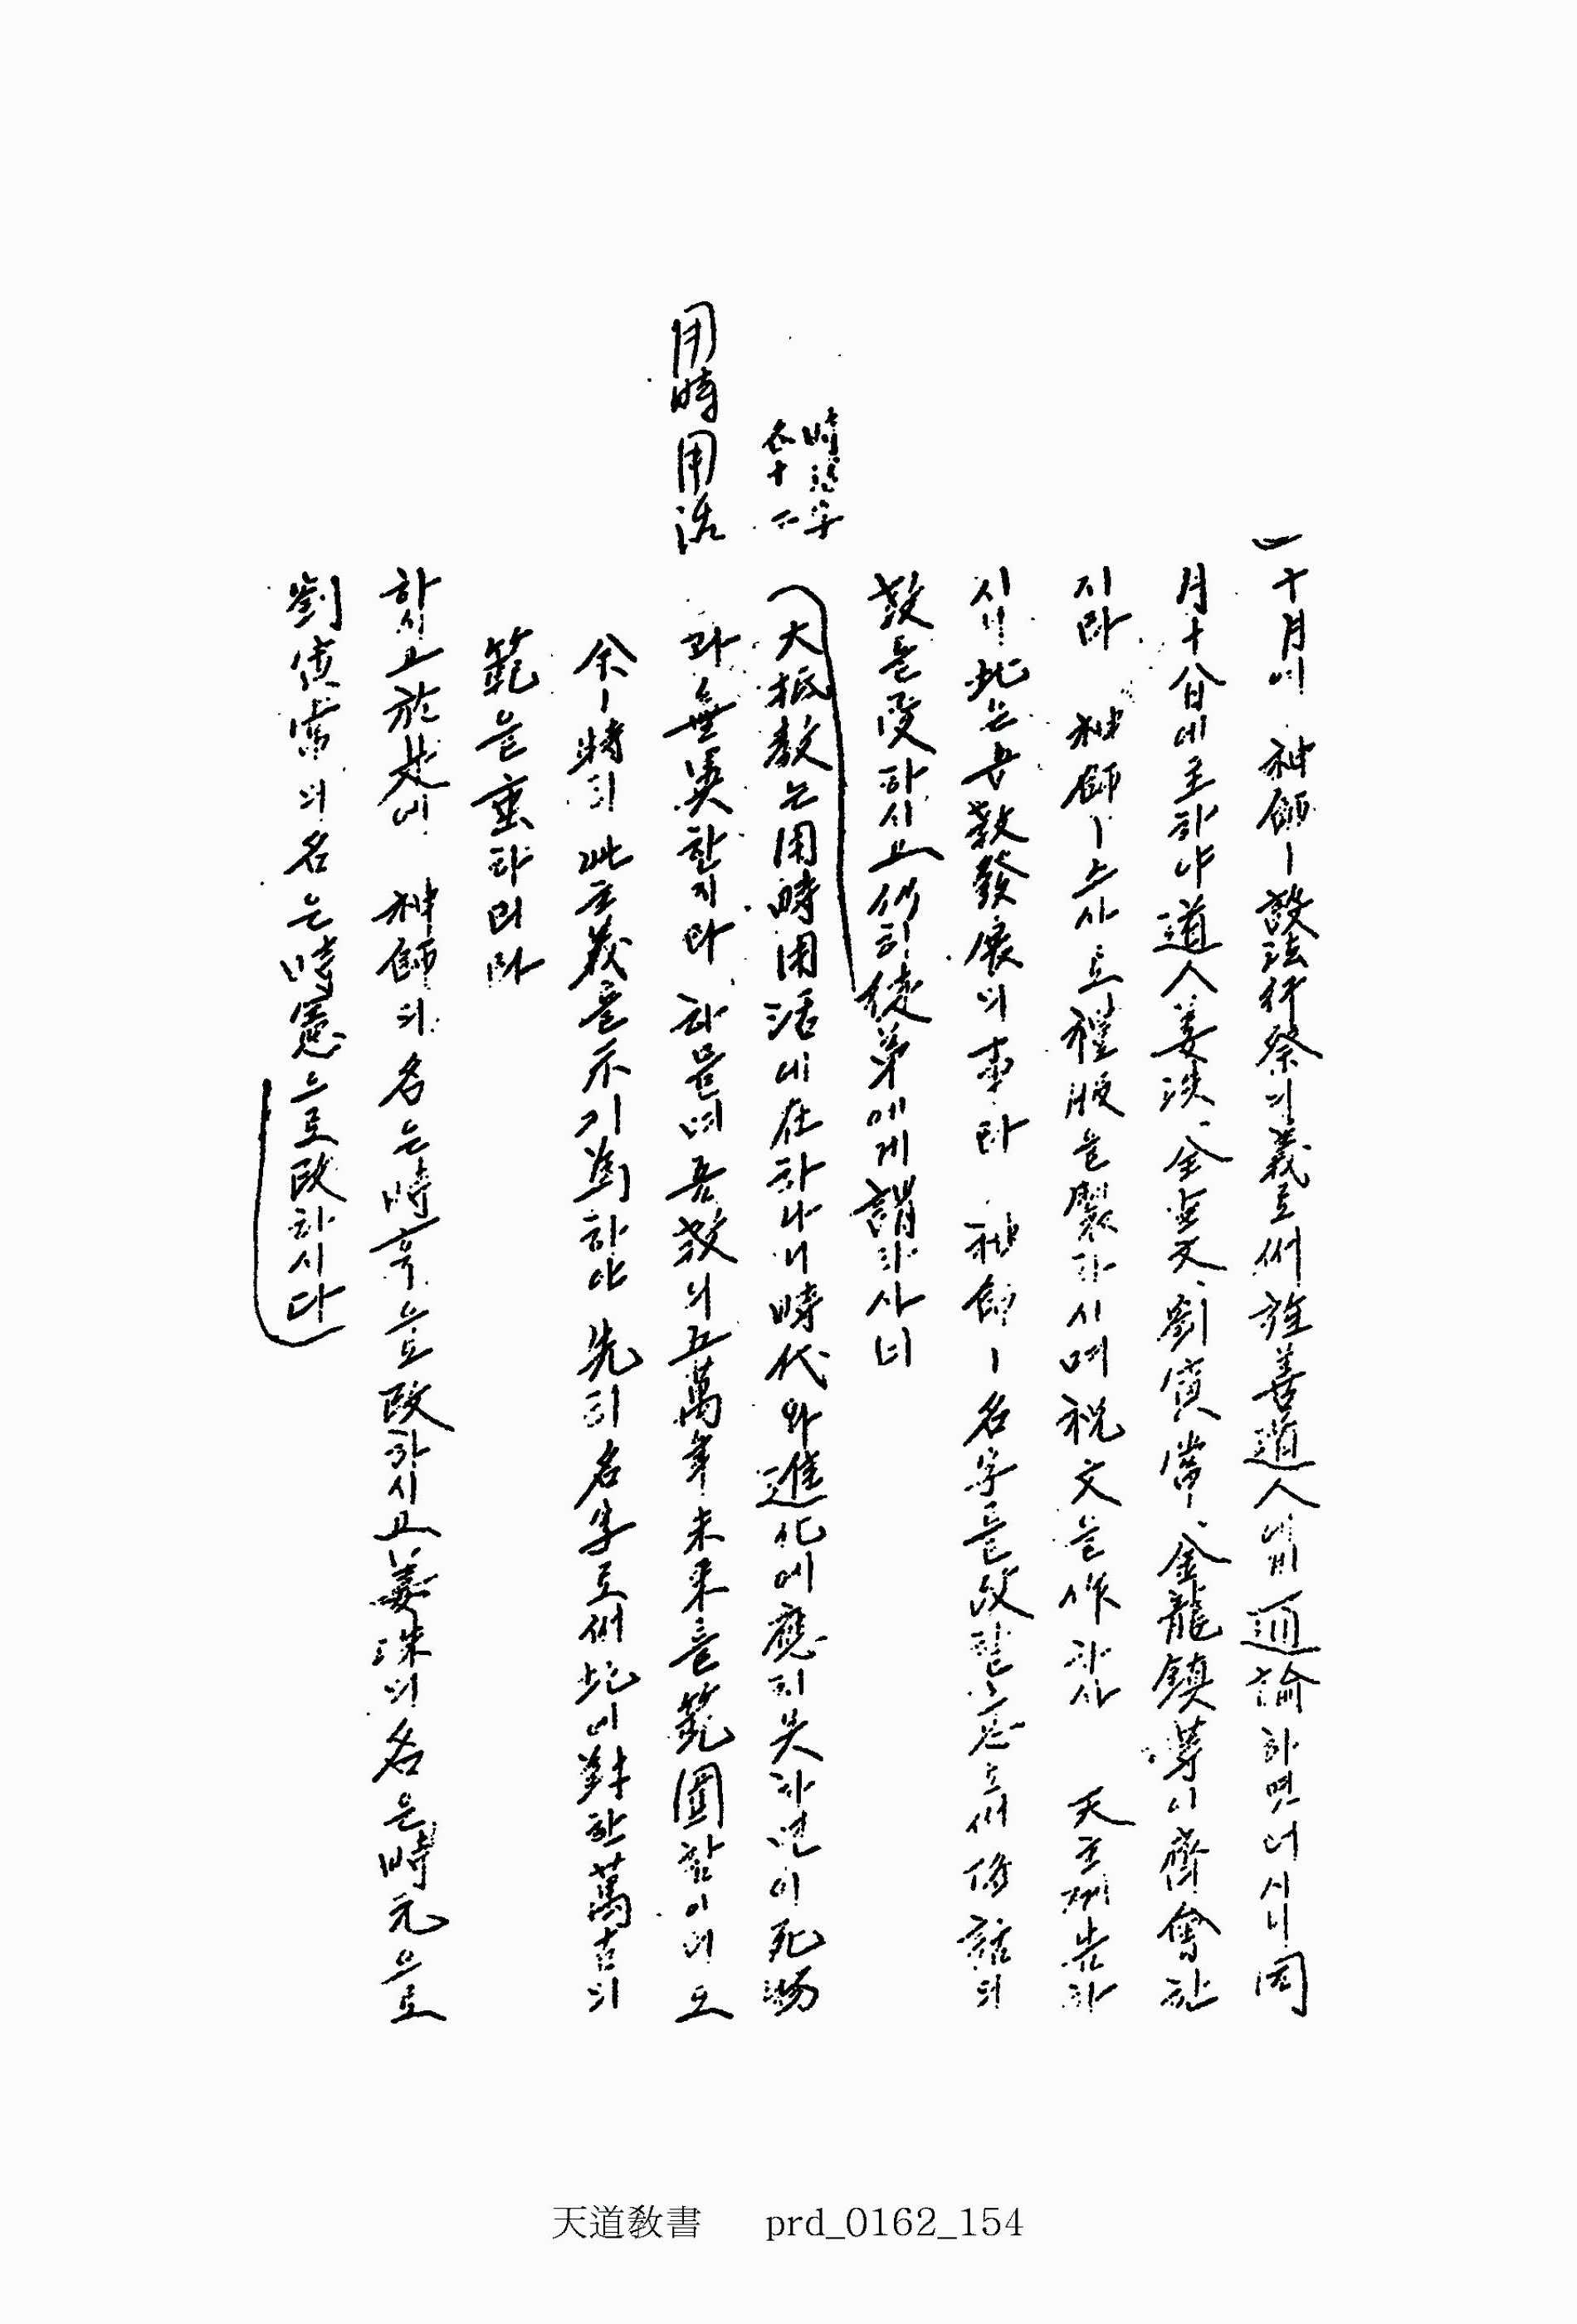 十月에 神師ㅣ設法行祭의義로써旌善道人에게通諭하엿더시니同
月十八日에至하야道人姜洙、全聖文、劉寅常、金龍鎭等이齊會한
지라 神師ㅣ스사로禮服을製하시며祝文을作하사 天主께告하
시니此는吾敎發展의事라 神師ㅣ名字를改할
敎를受하시고仍히徒弟에게謂하사되
時活字
名十二
(大抵敎는用時用活에在하나니時代와進化에應치失하면이死物
用時用活
과無異한지라하믈며吾敎의五萬年未來를範圍함이리오
余ㅣ將히此主義를示키爲하야先히名字로써此에對한萬古의
範을垂하리라
하시고於是에 神師의名은時亨으로改하시고姜洙의名은時元으로
劉寅常의名은時憲으로改하시다)
天道敎書 prd_0162_154